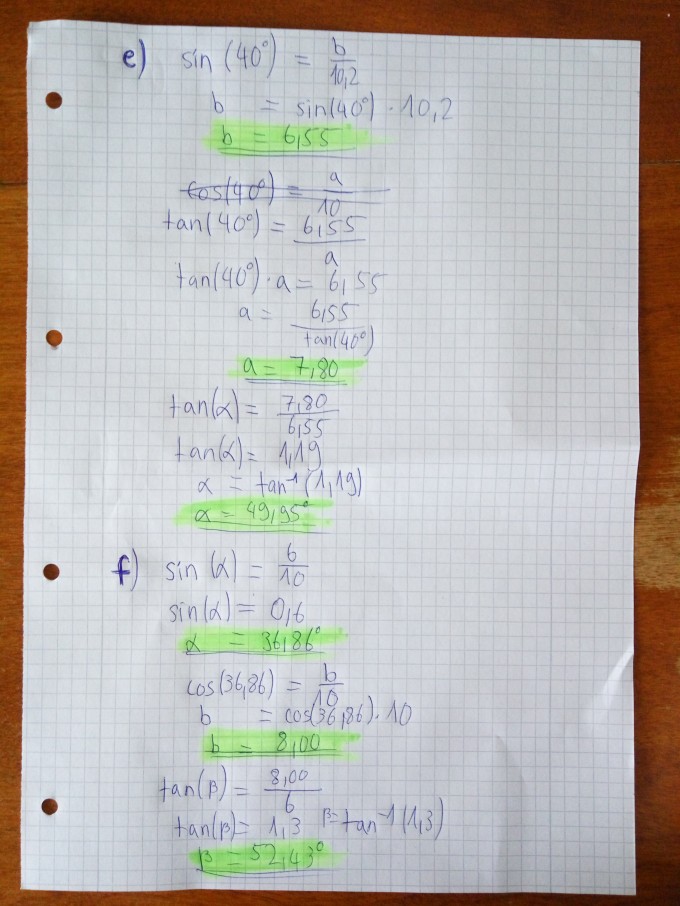 e) sin (40°) = b/10,2
b = sin(40°) · 10,2
b = 6,55
cos(40°) = a/10
tan(40°) = 6,55/a
tan(40°) · a = 6,55
a = 6,55/tan(40°)
a = 7,80
tan(α) = 7,80/6,55
tan(α) = 1,19
α = tan⁻¹ (1,19)
α = 49,95°
f) sin (α) = 6/10
sin(α) = 0,6
α = 36,86°
cos(36,86) = b/10
b = cos(36,86) · 10
b = 8,00
tan(β) = 8,00/6
tan(β) = 1,3 β = tan⁻¹ (1,3)
β = 52,43°